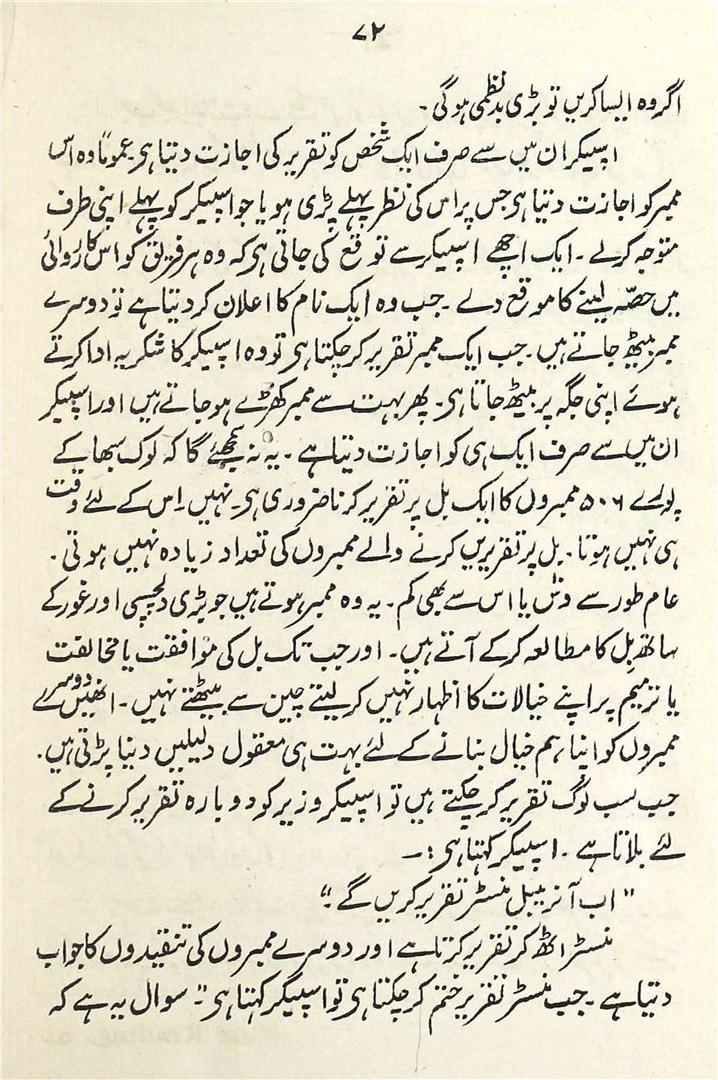 ۷۲
اگر وہ ایسا کریں تو بڑی بدنظمی ہوگی۔
اسپیکر ان میں سے صرف ایک شخص کو تقریر کی اجازت دیتا ہی۔ عموماً وہ اس
ممبر کو اجازت دیتا ہی جس پر اس کی نظر پہلے پڑی ہو یا جو اسپیکر کو پہلے اپنی طرف
متوجہ کرلے۔ ایک اچھے اسپیکر سے توقع کی جاتی ہی کہ وہ ہر فریق کو اس کارروائی
میں حصّہ لینے کا موقع دے۔ جب وہ ایک نام کا اعلان کر دیتا ہے تو دوسرے
ممبر بیٹھ جاتے ہیں۔ جب ایک ممبر تقریر کر چکتا ہی تو وہ اسپیکر کا شکریہ ادا کرتے
ہوئے اپنی جگہ پر بیٹھ جاتا ہی۔ پھر بہت سے ممبر کھڑے ہو جاتے ہیں اور اسپیکر
ان میں سے صرف ایک ہی کو اجازت دیتا ہے۔ یہ نہ سمجھئے گا کہ لوک سبھا کے
پورے ۵۰۶ ممبروں کا ایک بل پر تقریر کرنا ضروری ہی۔ نہیں۔ اِس کے لئے وقت
ہی نہیں ہوتا۔ بل پر تقریریں کرنے والے ممبروں کی تعداد زیادہ نہیں ہوتی۔
عام طور سے دس یا اس سے بھی کم۔ یہ وہ ممبر ہوتے ہیں جو بڑی دلچسپی اور غور کے
ساتھ بل کا مطالعہ کرکے آتے ہیں۔ اور جب تک بل کی موافقت یا مخالفت
یا ترمیم پر اپنے خیالات کا اظہار نہیں کر لیتے چین سے بیٹھتے نہیں۔ انھیں دوسرے
ممبروں کو اپنا ہم خیال بنانے کے لئے بہت ہی معقول دلیلیں دینا پڑتی ہیں۔
جب سب لوگ تقریر کر چکتے ہیں تو اسپیکر وزیر کو دوبارہ تقریر کرنے کے
لئے بلاتا ہے۔ اسپیکر کہتا ہی:۔
"اب آنریبل منسٹر تقریر کریں گے۔"
منسٹر اٹھ کر تقریر کرتا ہے اور دوسرے ممبروں کی تنقیدوں کا جواب
دیتا ہے۔ جب منسٹر تقریر ختم کر چکتا ہی تو اسپیکر کہتا ہی "۔ سوال یہ ہے کہ